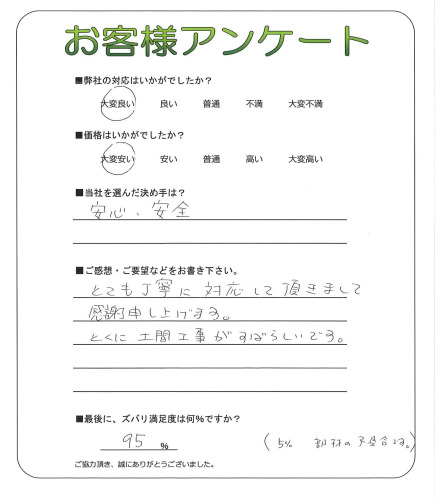 お客様アンケート
■弊社の対応はいかがでしたか?
大変良い 良い 普通 不満 大変不満
■価格はいかがでしたか?
大変安い 安い 普通 高い 大変高い
■当社を選んだ決め手は?
安心、安全
■ご感想・ご要望などをお書き下さい。
とても丁寧に対応して頂きまして
感謝申し上げます。
とくに土間工事がすばらしいです。
■最後に、ズバリ満足度は何%ですか?
95 %
(5% 部材の不具合です。)
ご協力頂き、誠にありがとうございました。